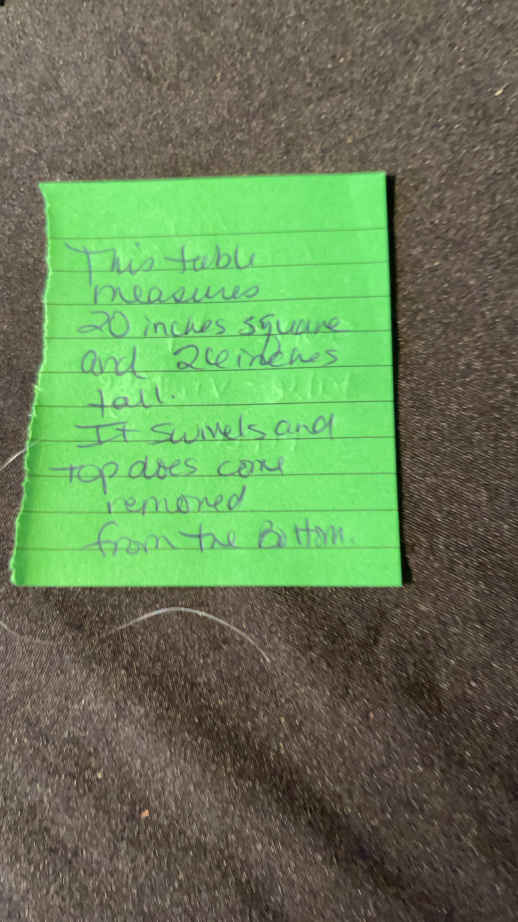 This table
measures
20 inches square
and 26 inches
tall.
It swivels and
top does come
removed
from the Bottom.